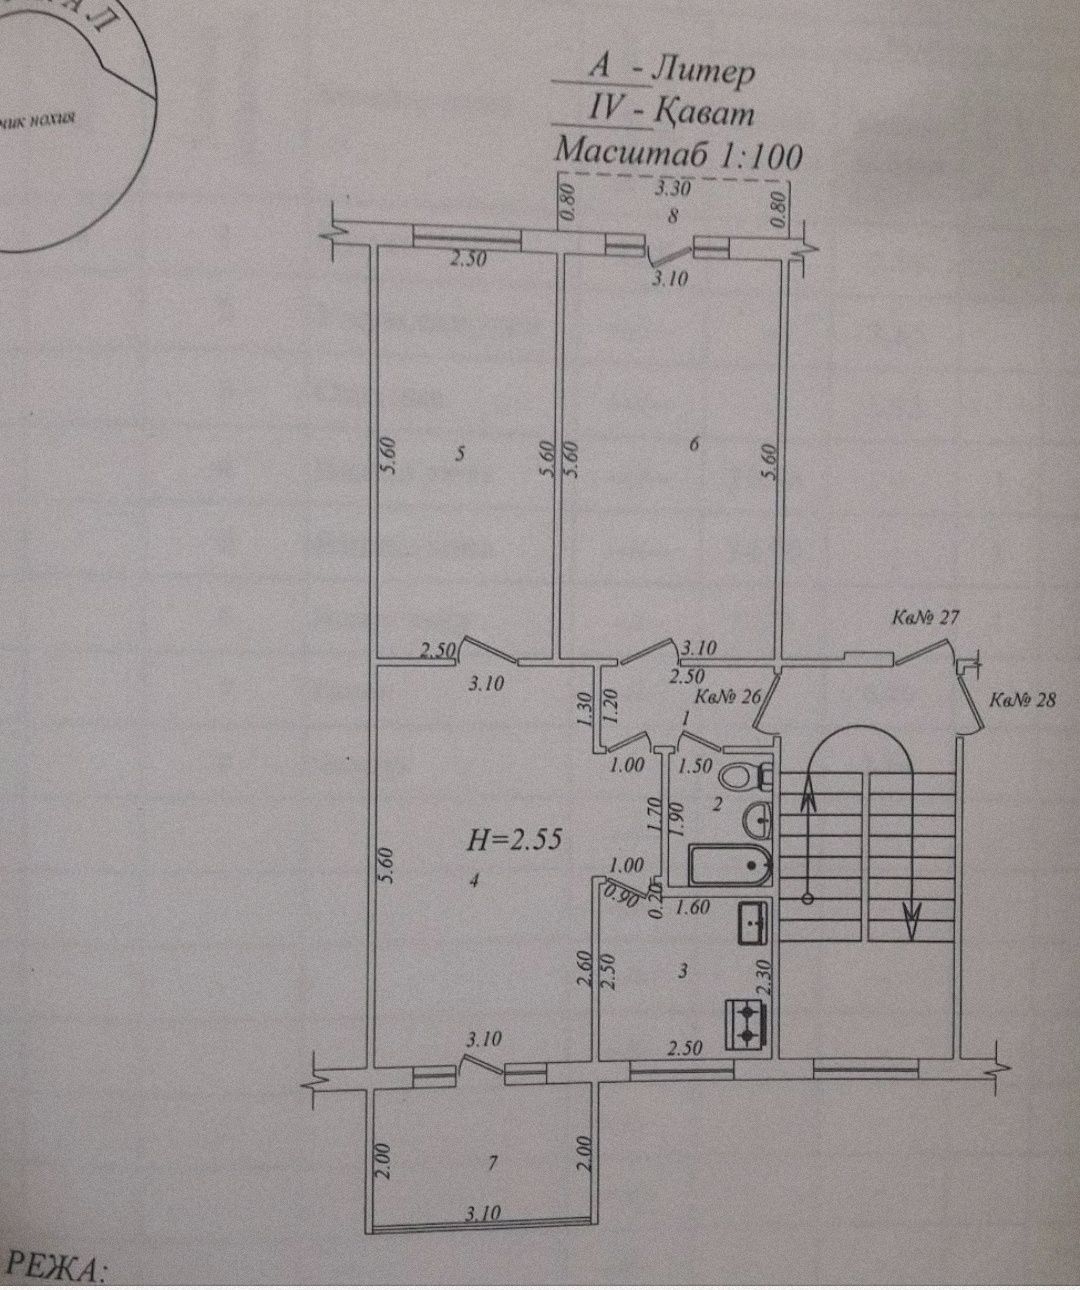 А - Литер
IV - Қават
Масштаб 1:100
чик нохия
3.30
0.80
8
0.80
2.50
3.10
5.60
5
5.60
5.60
6
5.60
Кв№ 27
2.50
3.10
3.10
2.50
Кв№ 26
Кв№ 28
1.30
1.20
1
1.00
1.50
2
1.70
1.90
H=2.55
5.60
4
1.00
0.90
0.20
1.60
2.60
2.50
3
2.30
3.10
2.50
2.00
7
2.00
3.10
РЕЖА: